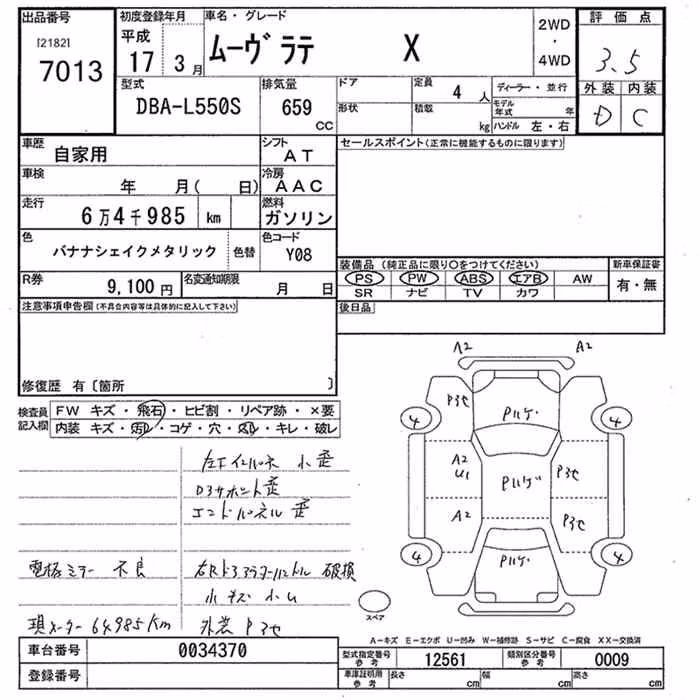 出品番号
[2182]
7013
初度登録年月
平成
17 3月
車名・グレード
ムーヴラテ X
2WD
・
4WD
評価点
3.5
外装 内装
D C
型式
DBA-L550S
排気量
659
CC
ドア
定員 4 人
形状
積載
kg
ディーラー・並行
モデル年式 年
ハンドル 左・右
車歴
自家用
シフト
AT
セールスポイント(正常に機能するものに限ります)
車検
年 月( 日)
冷房
AAC
走行
6万4千985 km
燃料
ガソリン
色
バナナシェイクメタリック
色替
色コード
Y08
装備品 (純正品に限り○をつけてください)
PS PW ABS エアB AW
SR ナビ TV カワ
新車保証書
有・無
R券
9,100円
名変通知期限
月 日
後日品
注意事項申告欄(不具合内容等は具体的に記入して下さい)
修復歴 有〔箇所 〕
検査員
記入欄
FW キズ・飛石・ヒビ割・リペア跡・×要
内装 キズ・汚れ・コゲ・穴・スレ・キレ・破レ
A2 A2
P3セ
Pハゲ
4 4
A2
U1
Pハゲ
P3セ
A2
P3セ
4 4
Pハゲ
スペア
小歪
D3サポート歪
エンドパネル 歪
電格ミラー 不良
破損
小キズ 小U
現メーター 64985Km
外装 P3セ
A-キズ E-エクボ U-凹み W-補修跡 S-サビ C-腐食 XX-交換済
車台番号
0034370
登録番号
型式指定番号
参考
12561
類別区分番号
参考
0009
車庫証明用
参考
長さ cm
幅 cm
高さ cm